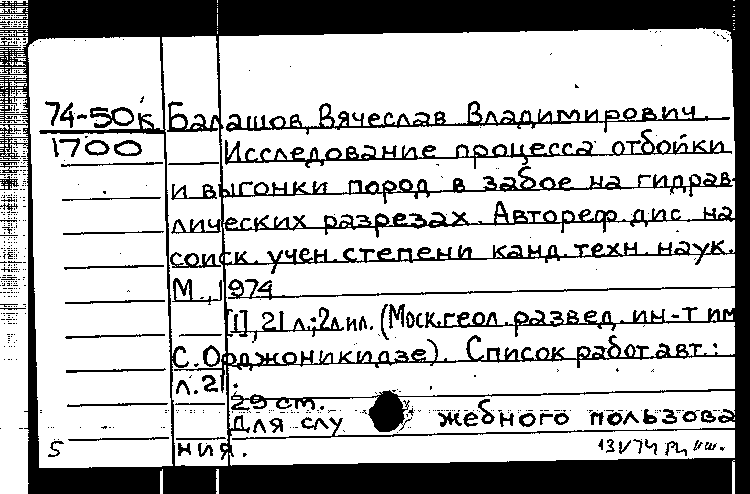 74-50к Балашов, Вячеслав Владимирович.
1700 Исследование процесса отбойки
и выгонки пород в забое на гидрав-
лических разрезах. Автореф. дис. на
соиск. учен. степени канд. техн. наук.
М., 1974.
[1], 21 л.; 2 л. ил. (Моск. геол. развед. ин-т им
С. Орджоникидзе). Список работ авт.:
л. 21.
29 см.
Для служебного пользова
ния.
5